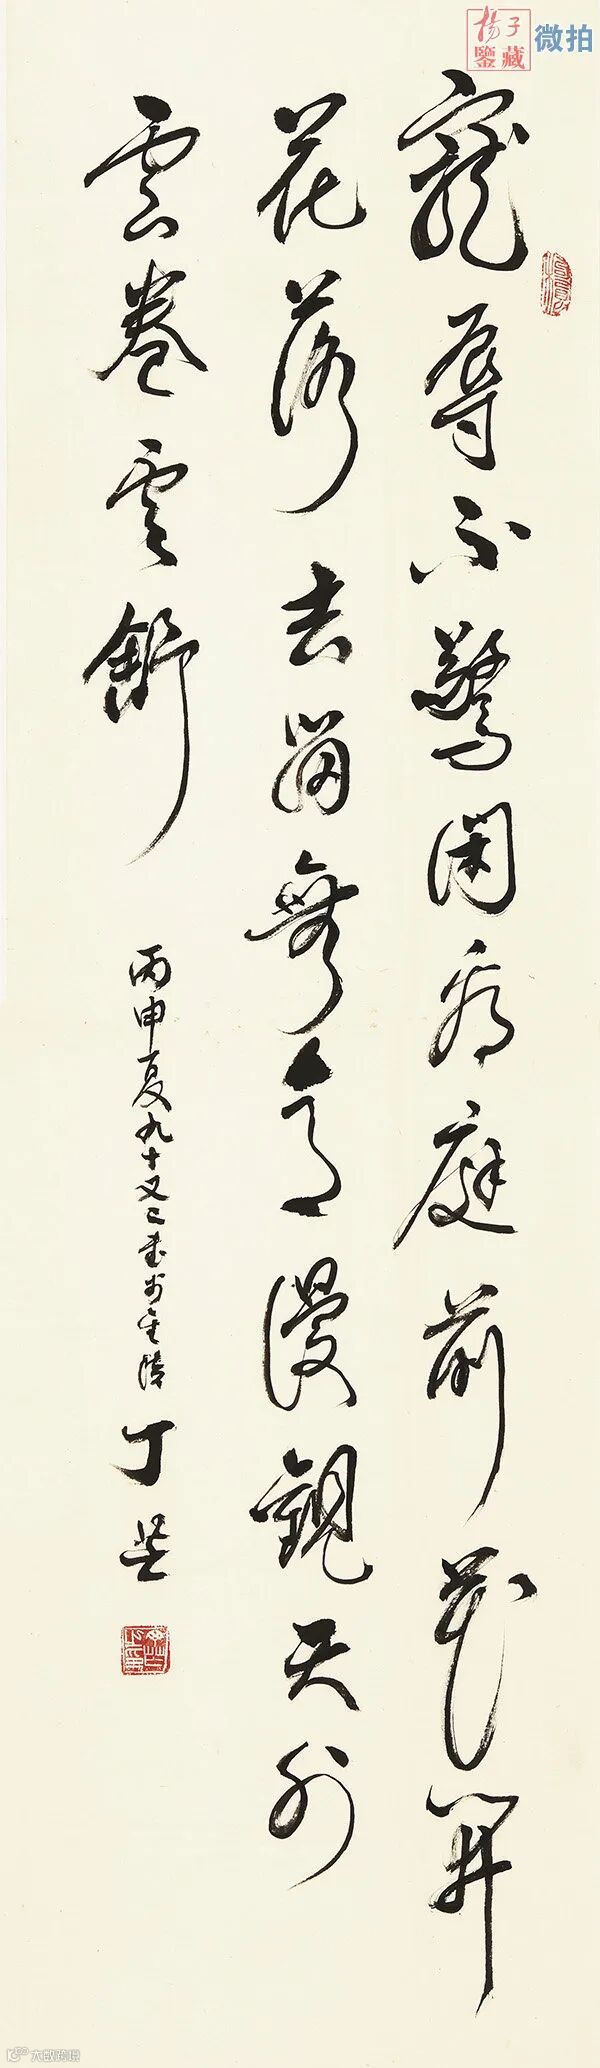 寵辱不驚閑看庭前花開
花落去留無意漫觀天外
雲卷雲舒
丙申夏九十又二書於金陵
丁芒
揚子
鑒藏
微拍
大数跨境